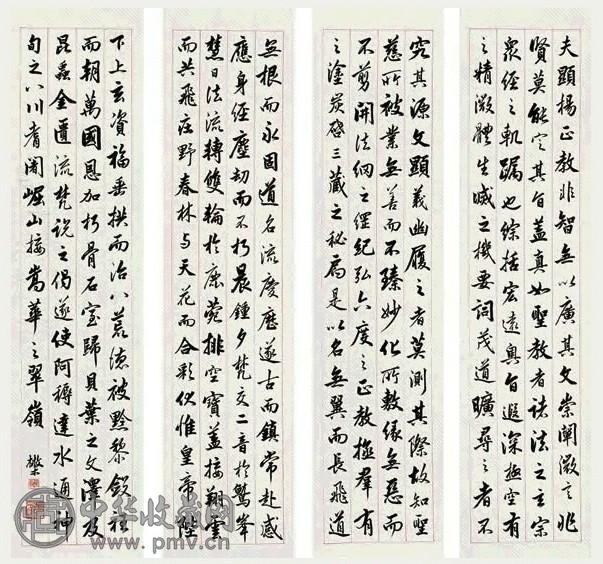 夫顯揚正教非智無以廣其文崇闡微言非
賢莫能定其旨蓋真如聖教者諸法之玄宗
衆經之軌躅也綜括宏遠奧旨遐深極空有
之精微體生滅之機要詞茂道曠尋之者不
究其源文顯義幽履之者莫測其際故知聖
慈所被業無善而不臻妙化所敷緣無惡而
不剪開法網之綱紀弘六度之正教拯羣有
之塗炭啓三藏之秘扃是以名無翼而長飛道
無根而永固道名流慶歷遂古而鎮常赴感
應身經塵劫而不朽晨鍾夕梵交二音於鷲峯
慧日法流轉雙輪於鹿菀排空寶蓋接翔雲
而共飛莊野春林与天花而合彩伏惟皇帝陛
下上玄資福垂拱而治八荒德被黔黎斂衽
而朝萬國恩加朽骨石室歸貝葉之文澤及
昆蟲金匱流梵說之偈遂使阿耨達水通神
甸之八川耆闍崛山接嵩華之翠嶺
中华收藏网
www.pmv.cn